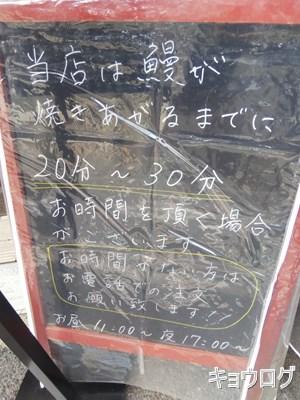 当店は鰻が
焼きあがるまでに
20分～30分
お時間を頂く場合
がございます
お時間がない方は
お電話での注文
お願い致します!!
お昼 11:00～ 夜 17:00～
キョウログ